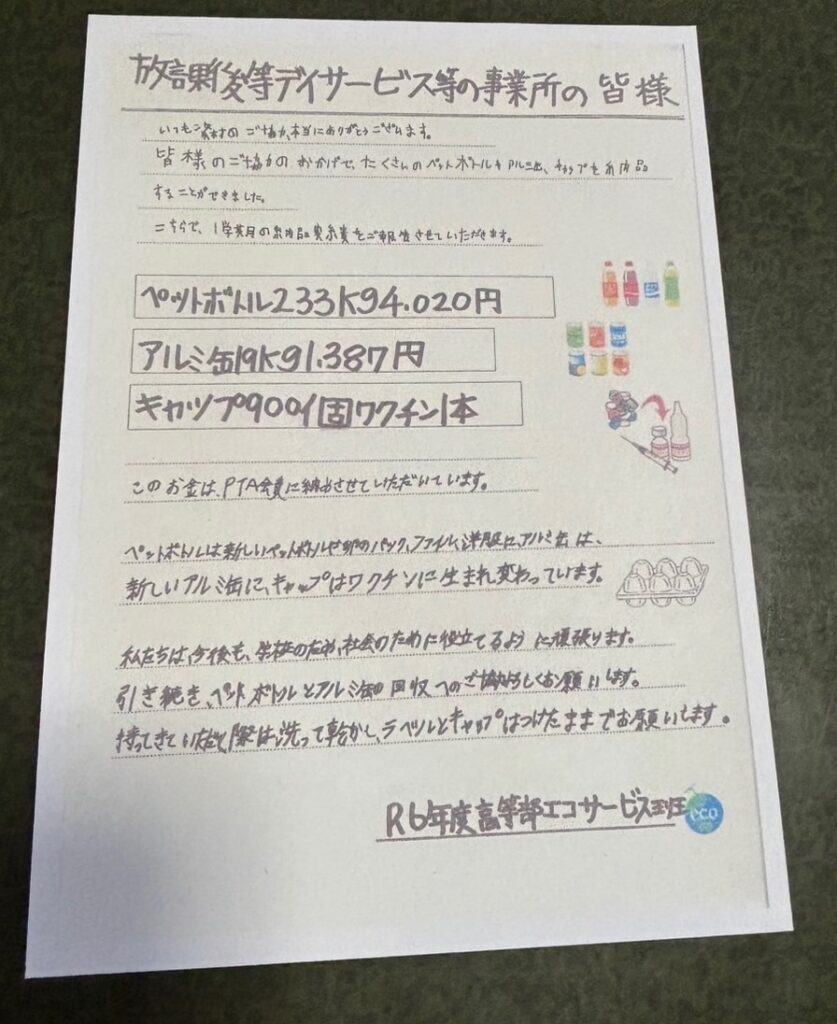 放課後等デイサービス等の事業所の皆様
いつも資材のご協力、本当にありがとうございます。
皆様のご協力のおかげで、たくさんのペットボトルやアルミ缶、キャップを納品
することができました。
こちらで、1学期の納品実績をご報告させていただきます。
ペットボトル233Kg4.020円
アルミ缶19Kg1.387円
キャップ900個ワクチン1本
このお金は、PTA会費に納めさせていただいています。
ペットボトルは新しいペットボトルや卵のパック、ファイル、洋服に、アルミ缶は、
新しいアルミ缶に、キャップはワクチンに生まれ変わっています。
私たちは、今後も、学校のため、社会のために役立てるように頑張ります。
引き続き、ペットボトルとアルミ缶の回収へのご協力よろしくお願いします。
持ってきていただく際は、洗って乾かし、ラベルとキャップはつけたままでお願いします。
R6年度高等部エコサービス班
eco